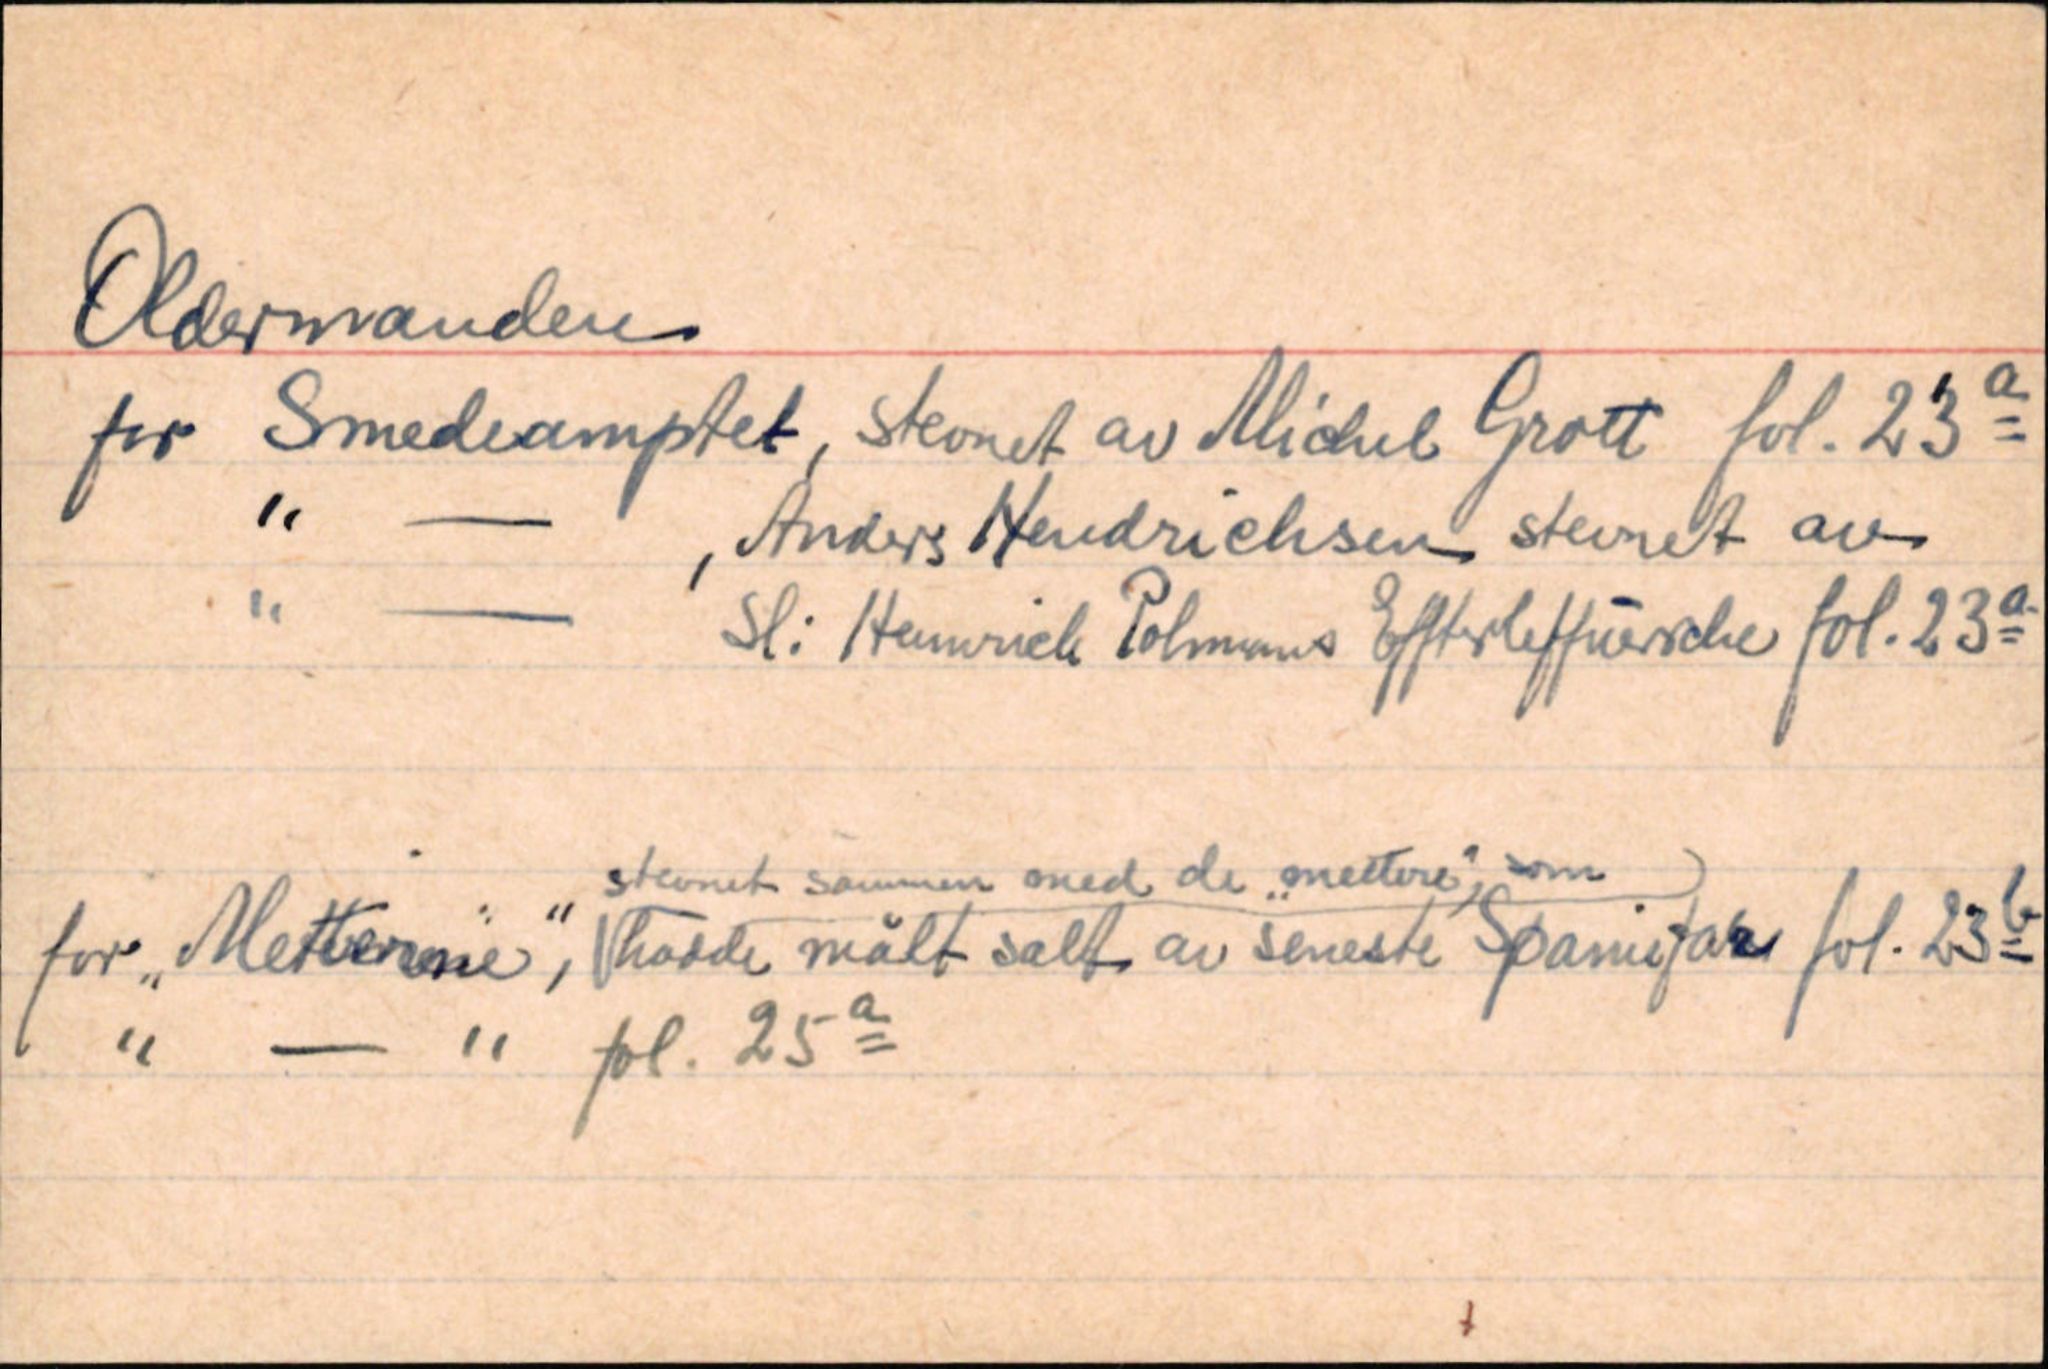 Oldermanden
for Smedeamptet, stevnet av Michel Grott fol. 23 a
" — , Anders Hendrichsen stevnet av
" — Sl: Heinrich Polmans Effterleffuersche fol. 23 a
stevnet sammen med de "mettere", som
for "Metterene", havde målt salt av seneste Spaniefar fol. 23 b
" — " fol. 25 a